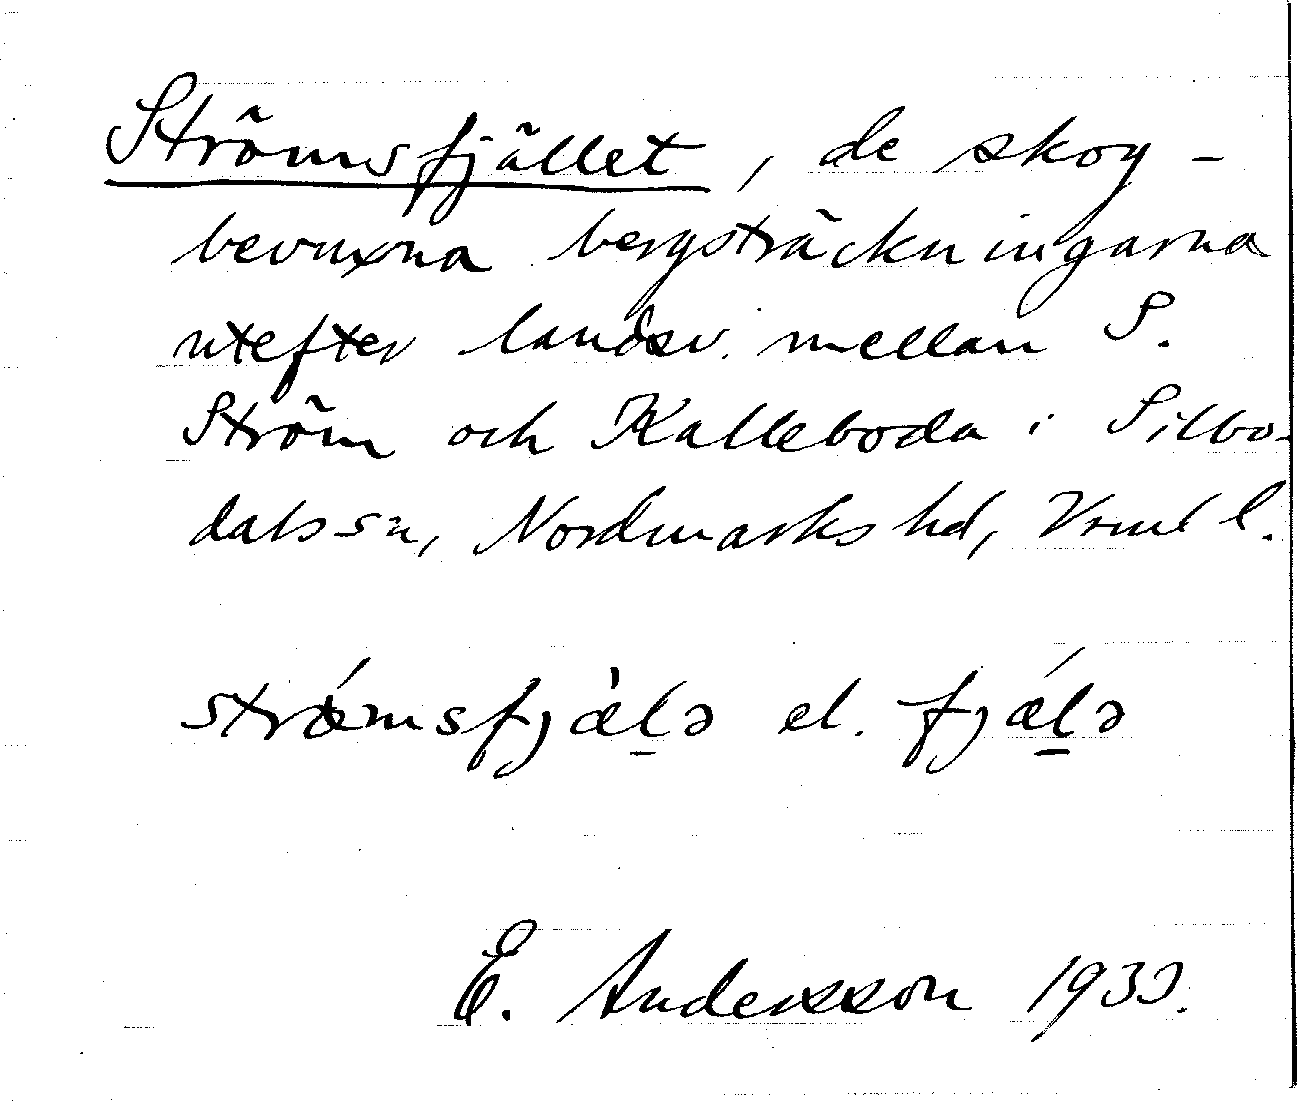 Strömsfjället, de skog-
bevuxna bergsträckningarna
utefter landsv. mellan S.
Ström och Kalleboda i Silbo-
dals sn, Nordmarks hd, Vrml l.
strǿmsfjæ̀l̠ə el. fjǽl̠ə
E. Andersson 1933.